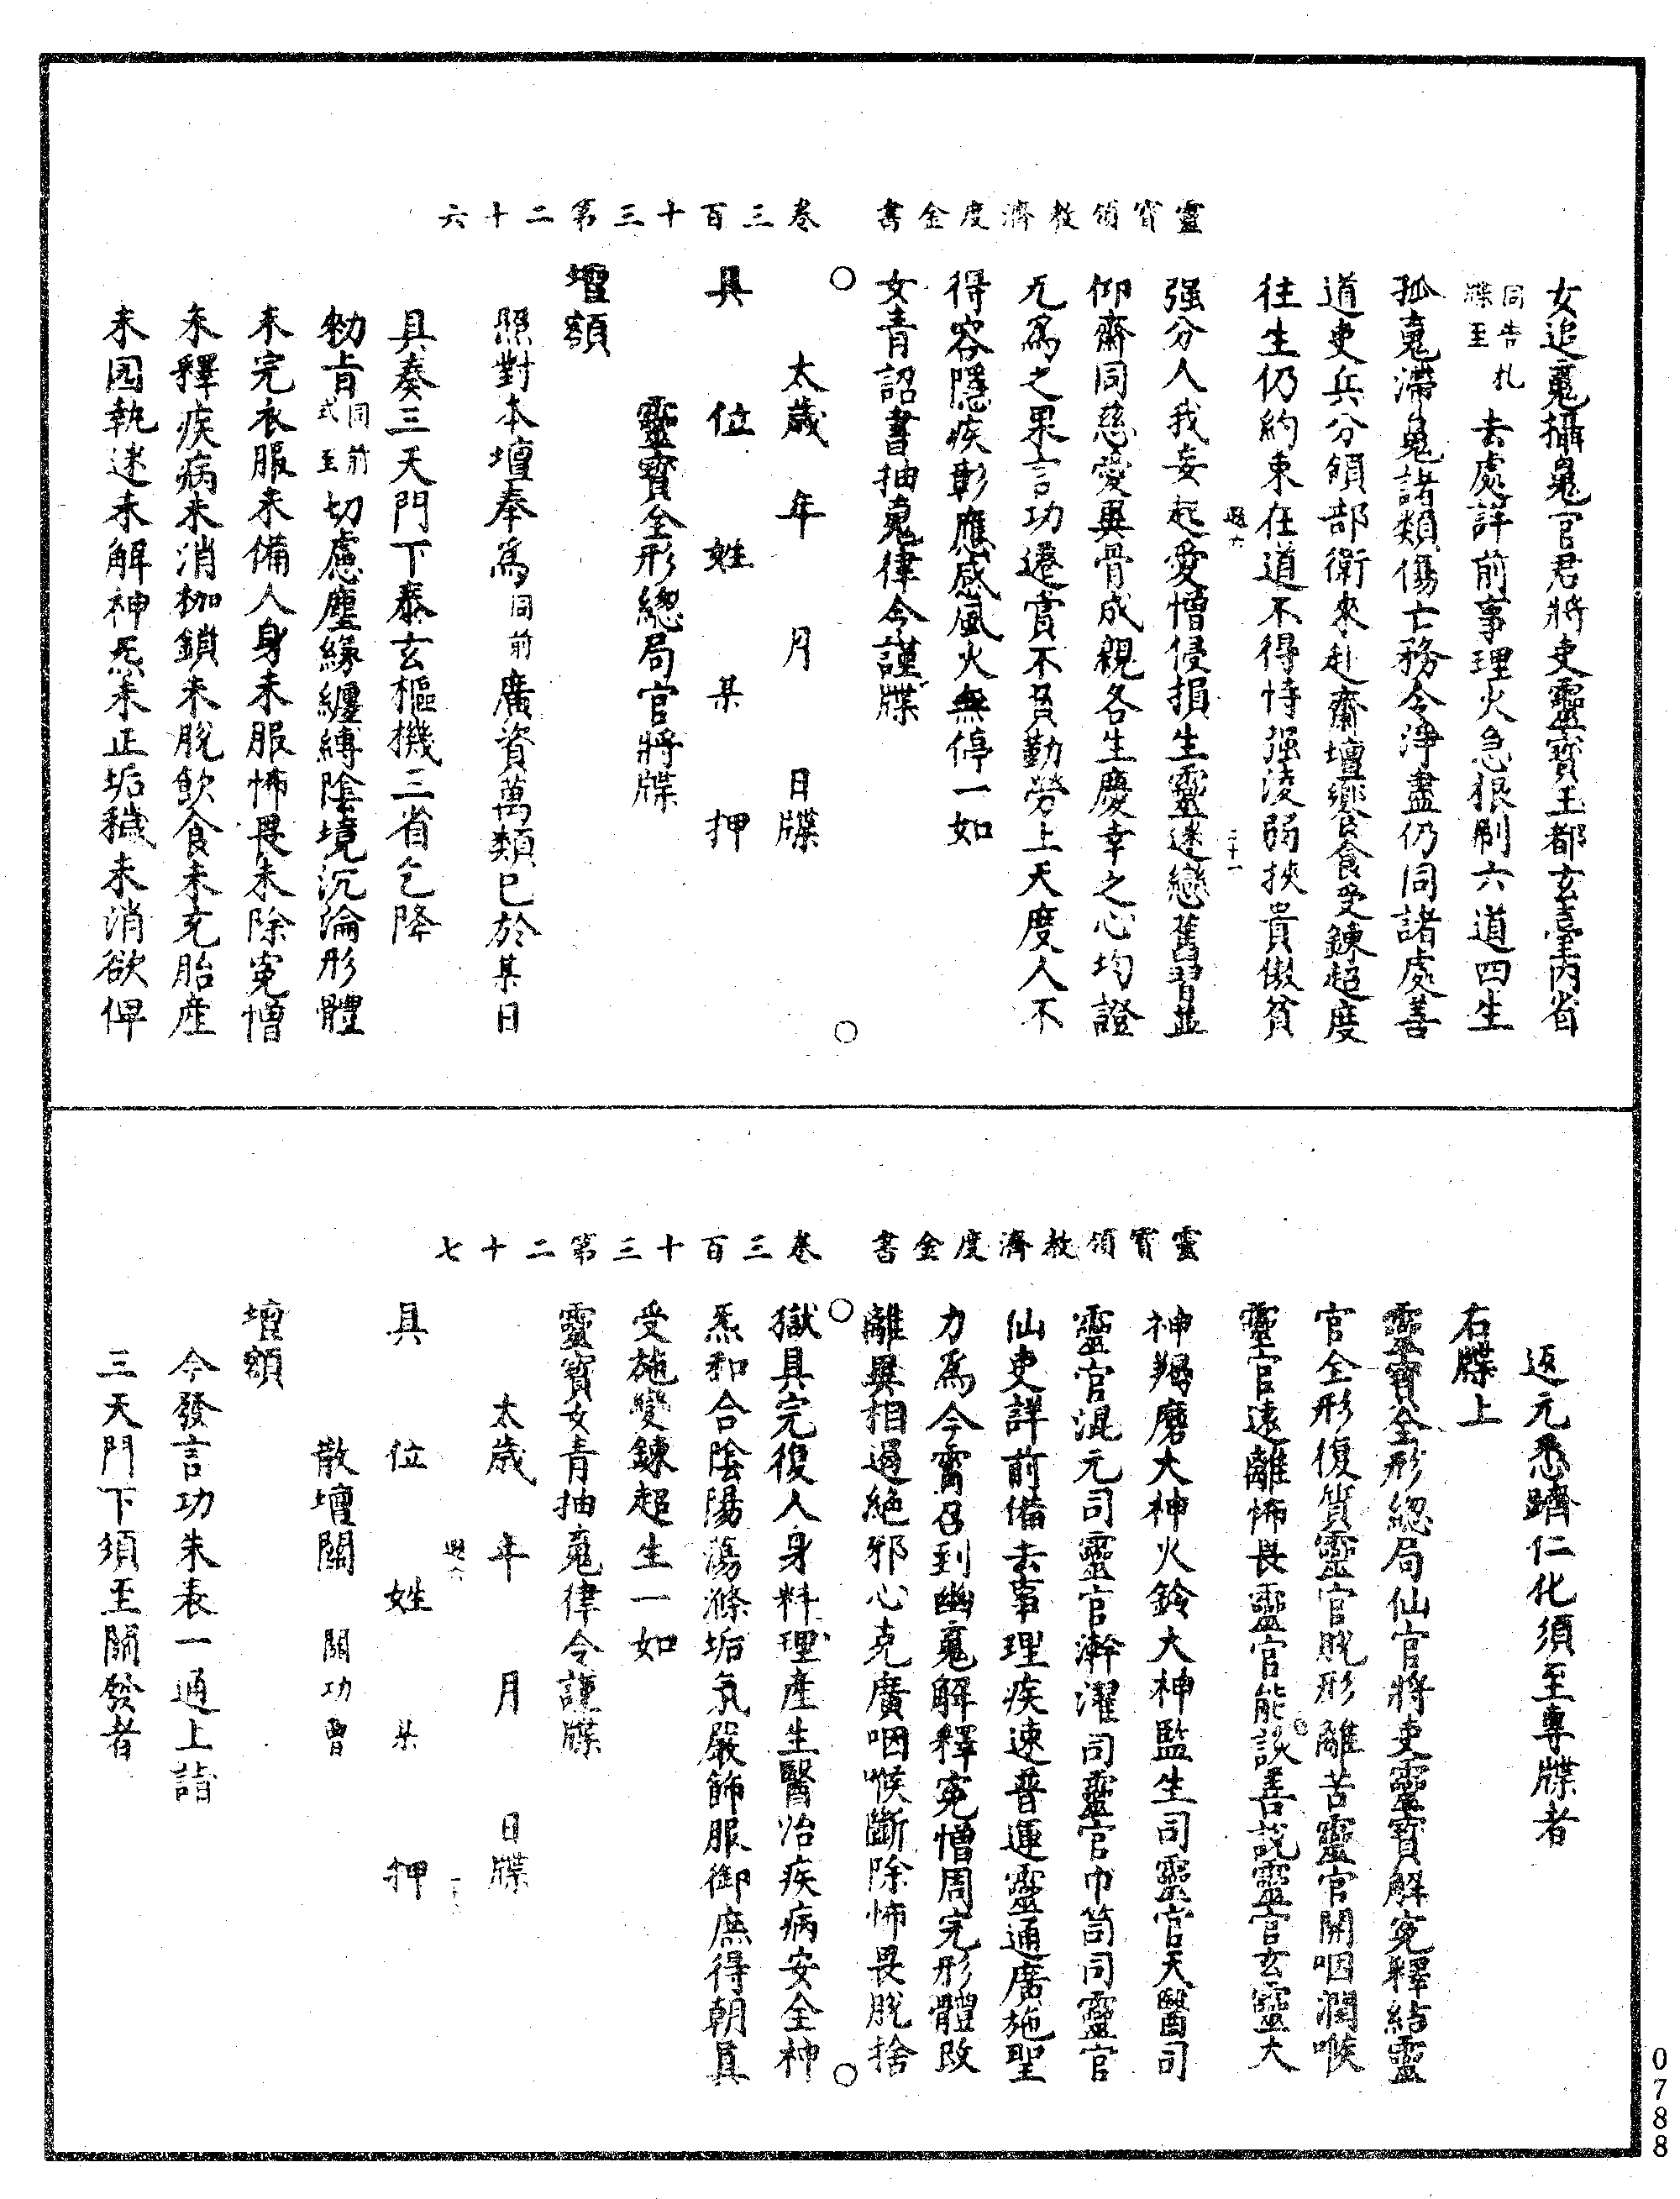 靈寶領教濟度金書　卷三百十三第二十六
女追䰟攝䰟官君將吏靈寶玉都玄臺內省
同告札牒至去處詳前事理火急根刷六道四生
孤䰟滯䰟諸類傷亡務令淨盡仍同諸處善
道吏兵分領部衛來赴齋壇饗食受鍊超度
往生仍約束在道不得恃强淩弱挾貴傲貧
强分人我妄起愛憎侵損生靈迷戀舊習並
仰齋同慈愛異骨成親各生慶幸之心均證
无爲之果言功遷賞不負勤勞上天度人不
得容隱疾彰應感風火無停一如
女青詔書抽䰟律令謹牒
太歲　年　月　日牒
具　位　姓　某　押
靈寶全形緫局官將牒
壇額
照對本壇奉爲同前廣資萬類已於某日
具奏三天門下泰玄樞機三省乞降
勑旨同前式至切慮塵緣纏縛陰境沉淪形體
未完衣服未備人身未服怖畏未除寃憎
未釋疾病未消枷鎖未脫飲食未充胎產
未囡執迷未解神炁未正垢穢未消欲俾
靈寶領教濟度金書　卷三百十三第二十七
返元悉躋仁化須至專牒者
右牒上
靈寶全形緫局仙官將吏靈寶解寃釋結靈
官全形復質靈官脫形離苦靈官開咽潤喉
靈官遠離怖畏靈官能談善說靈官玄靈大
神羯磨大神火鈴大神監生司靈官天醫司
靈官混元司靈官澣濯司靈官巾笥司靈官
仙吏詳前備去事理疾速普運靈通廣施聖
力爲今霄召到幽䰟解釋寃憎周完形體改
離異相過絕邪心克廣咽喉斷除怖畏脫捨
獄具完復人身料理產生醫治疾病安全神
炁和合陰陽蕩滌垢氛嚴飾服御庶得朝真
受施變鍊超生一如
靈寶女青抽䰟律令謹牒
太歲　年　月　日牒
具　位　姓　某　押
散壇關　關功曹
壇額
今發言功朱表一通上詣
三天門下須至關發者
0788